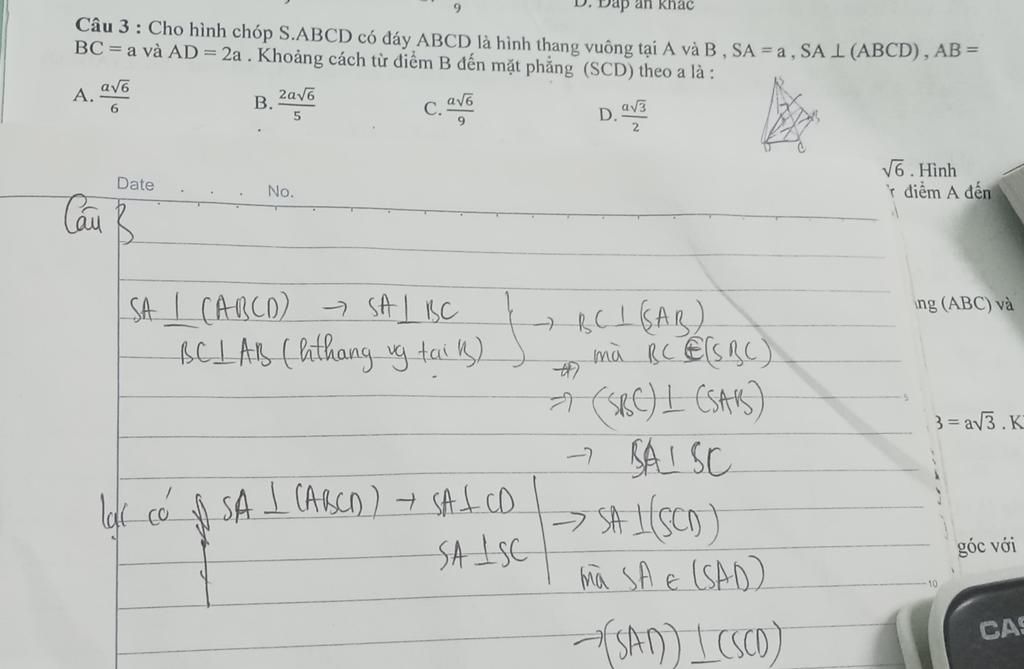 9
D. Đáp án khác
Câu 3 : Cho hình chóp S.ABCD có đáy ABCD là hình thang vuông tại A và B , SA = a , SA ⊥ (ABCD) , AB =
BC = a và AD = 2a . Khoảng cách từ điểm B đến mặt phẳng (SCD) theo a là :
A. a√6/6 B. 2a√6/5 C. a√6/9 D. a√3/2
√6 . Hình
điểm A đến
Date . . . No.
Câu 3
SA ⊥ (ABCD) → SA ⊥ BC
BC ⊥ AB (hthang vg tại B)
→ BC ⊥ (SAB)
mà BC ∈ (SBC)
⇒ (SBC) ⊥ (SAB)
→ SA ⊥ SC
lại có SA ⊥ (ABCD) → SA ⊥ CD
SA ⊥ SC
→ SA ⊥ (SCD)
mà SA ∈ (SAD)
→ (SAD) ⊥ (SCD)
ng (ABC) và
5
3 = a√3 . K
góc với
10
CAS